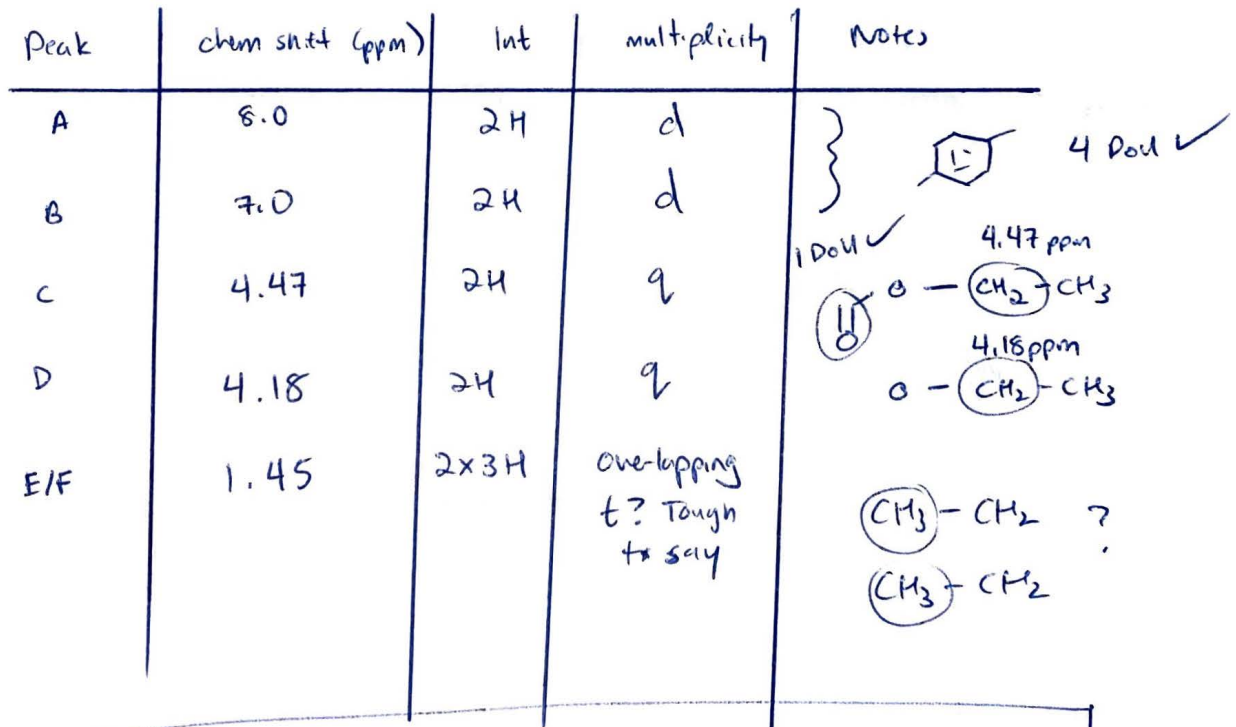 Peak chem shift (ppm) Int multiplicity Notes
A 8.0 2H d
4 DoU ✓
B 7.0 2H d
1 DoU ✓
4.47 ppm
C 4.47 2H q O - CH2 - CH3
O
4.18ppm
D 4.18 2H q O - CH2 - CH3
E/F 1.45 2x3H overlapping
t? Tough
to say
CH3 - CH2 ?
CH3 - CH2